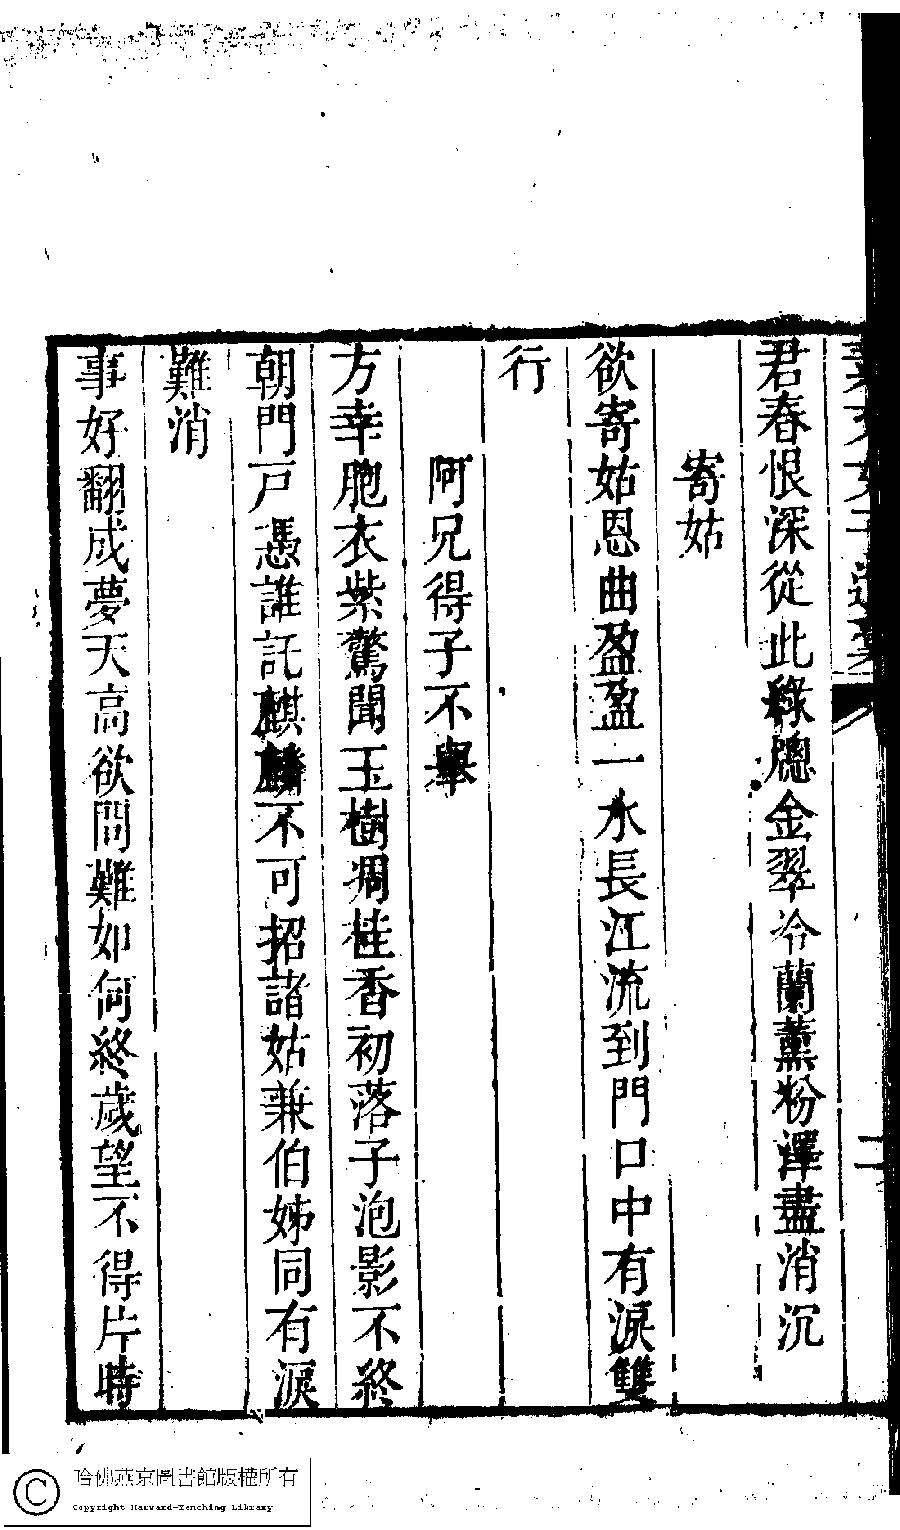 君春恨深從此綠牕金翠冷蘭薰粉澤盡消沉
寄姑
欲寄姑恩曲盈盈一水長江流到門口中有淚雙
行
阿兄得子不舉
方幸胞衣紫驚聞玉樹凋桂香初落子泡影不終
朝門戸憑誰託麒麟不可招諸姑兼伯姊同有淚
難消
事好翻成夢天高欲問難如何終歲望不得片時
二
哈佛燕京圖書館版權所有
Copyright Harvard-Yenching Library